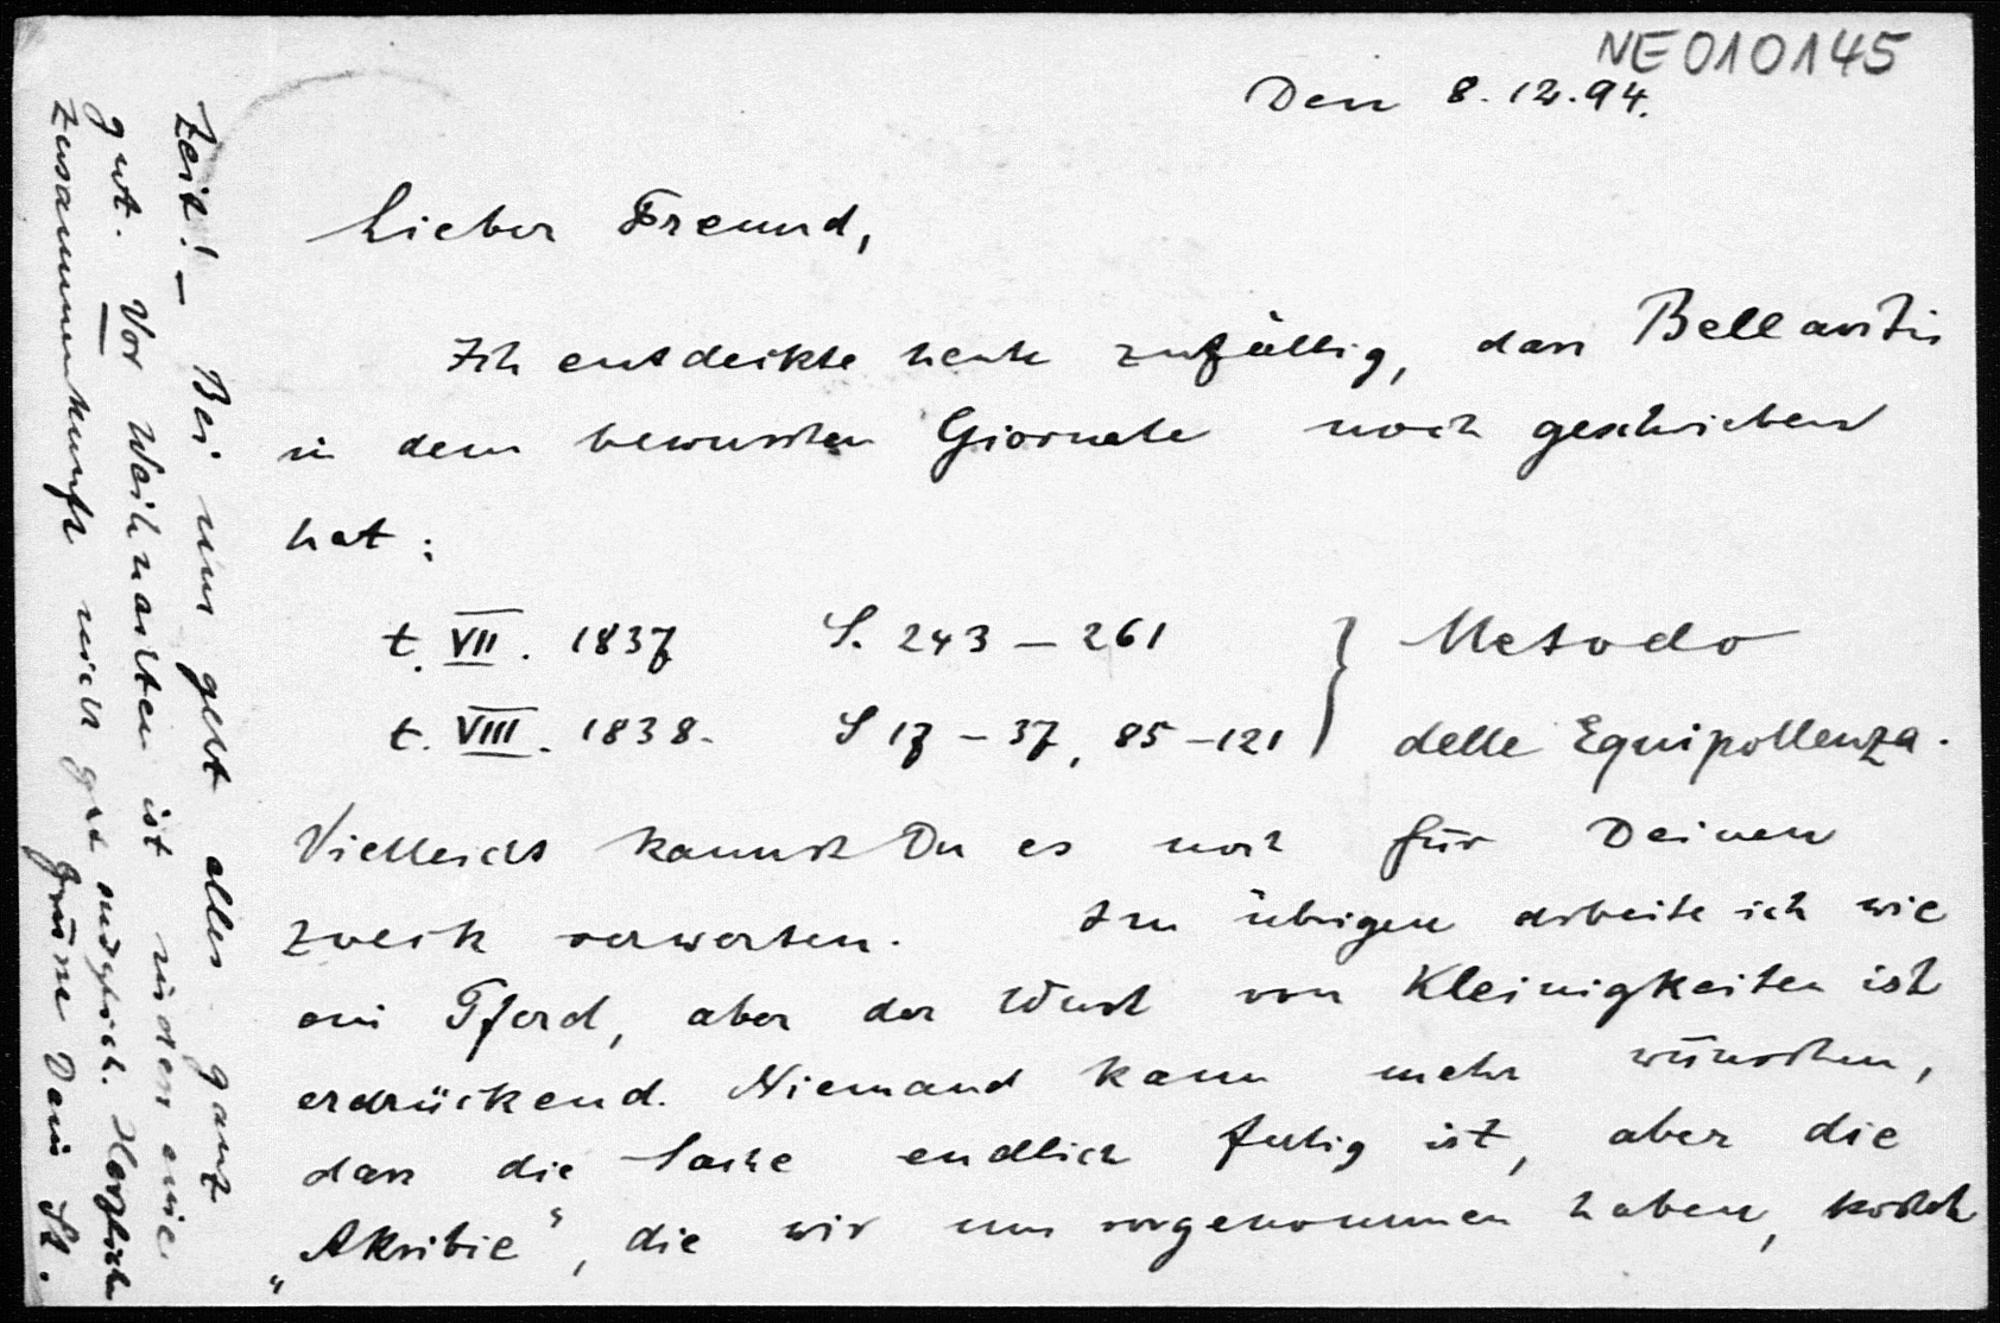 NE010145
Den 8.12.94.
Lieber Freund,
Ich entdeckte heute zufällig, dass Bellavitis
in dem bewussten Giornale noch geschrieben
hat:
t. VII. 1837 S. 243 – 261 } Metodo
t. VIII. 1838. S 17 – 37, 85 – 121 } delle Equipollenza.
Vielleicht kannst Du es noch für Deinen
Zweck verwerten. Im übrigen arbeite ich wie
ein Pferd, aber der Wust von Kleinigkeiten ist
erdrückend. Niemand kann mehr wünschen,
dass die Sache endlich fertig ist, aber die
„Akribie“, die wir uns vorgenommen haben, kostet
Zeit! – Bei uns geht alles ganz
gut. – Vor Weihnachten ist indess eine
Zusammenkunft nicht gut möglich. Herzlich
grüsse Dein St.